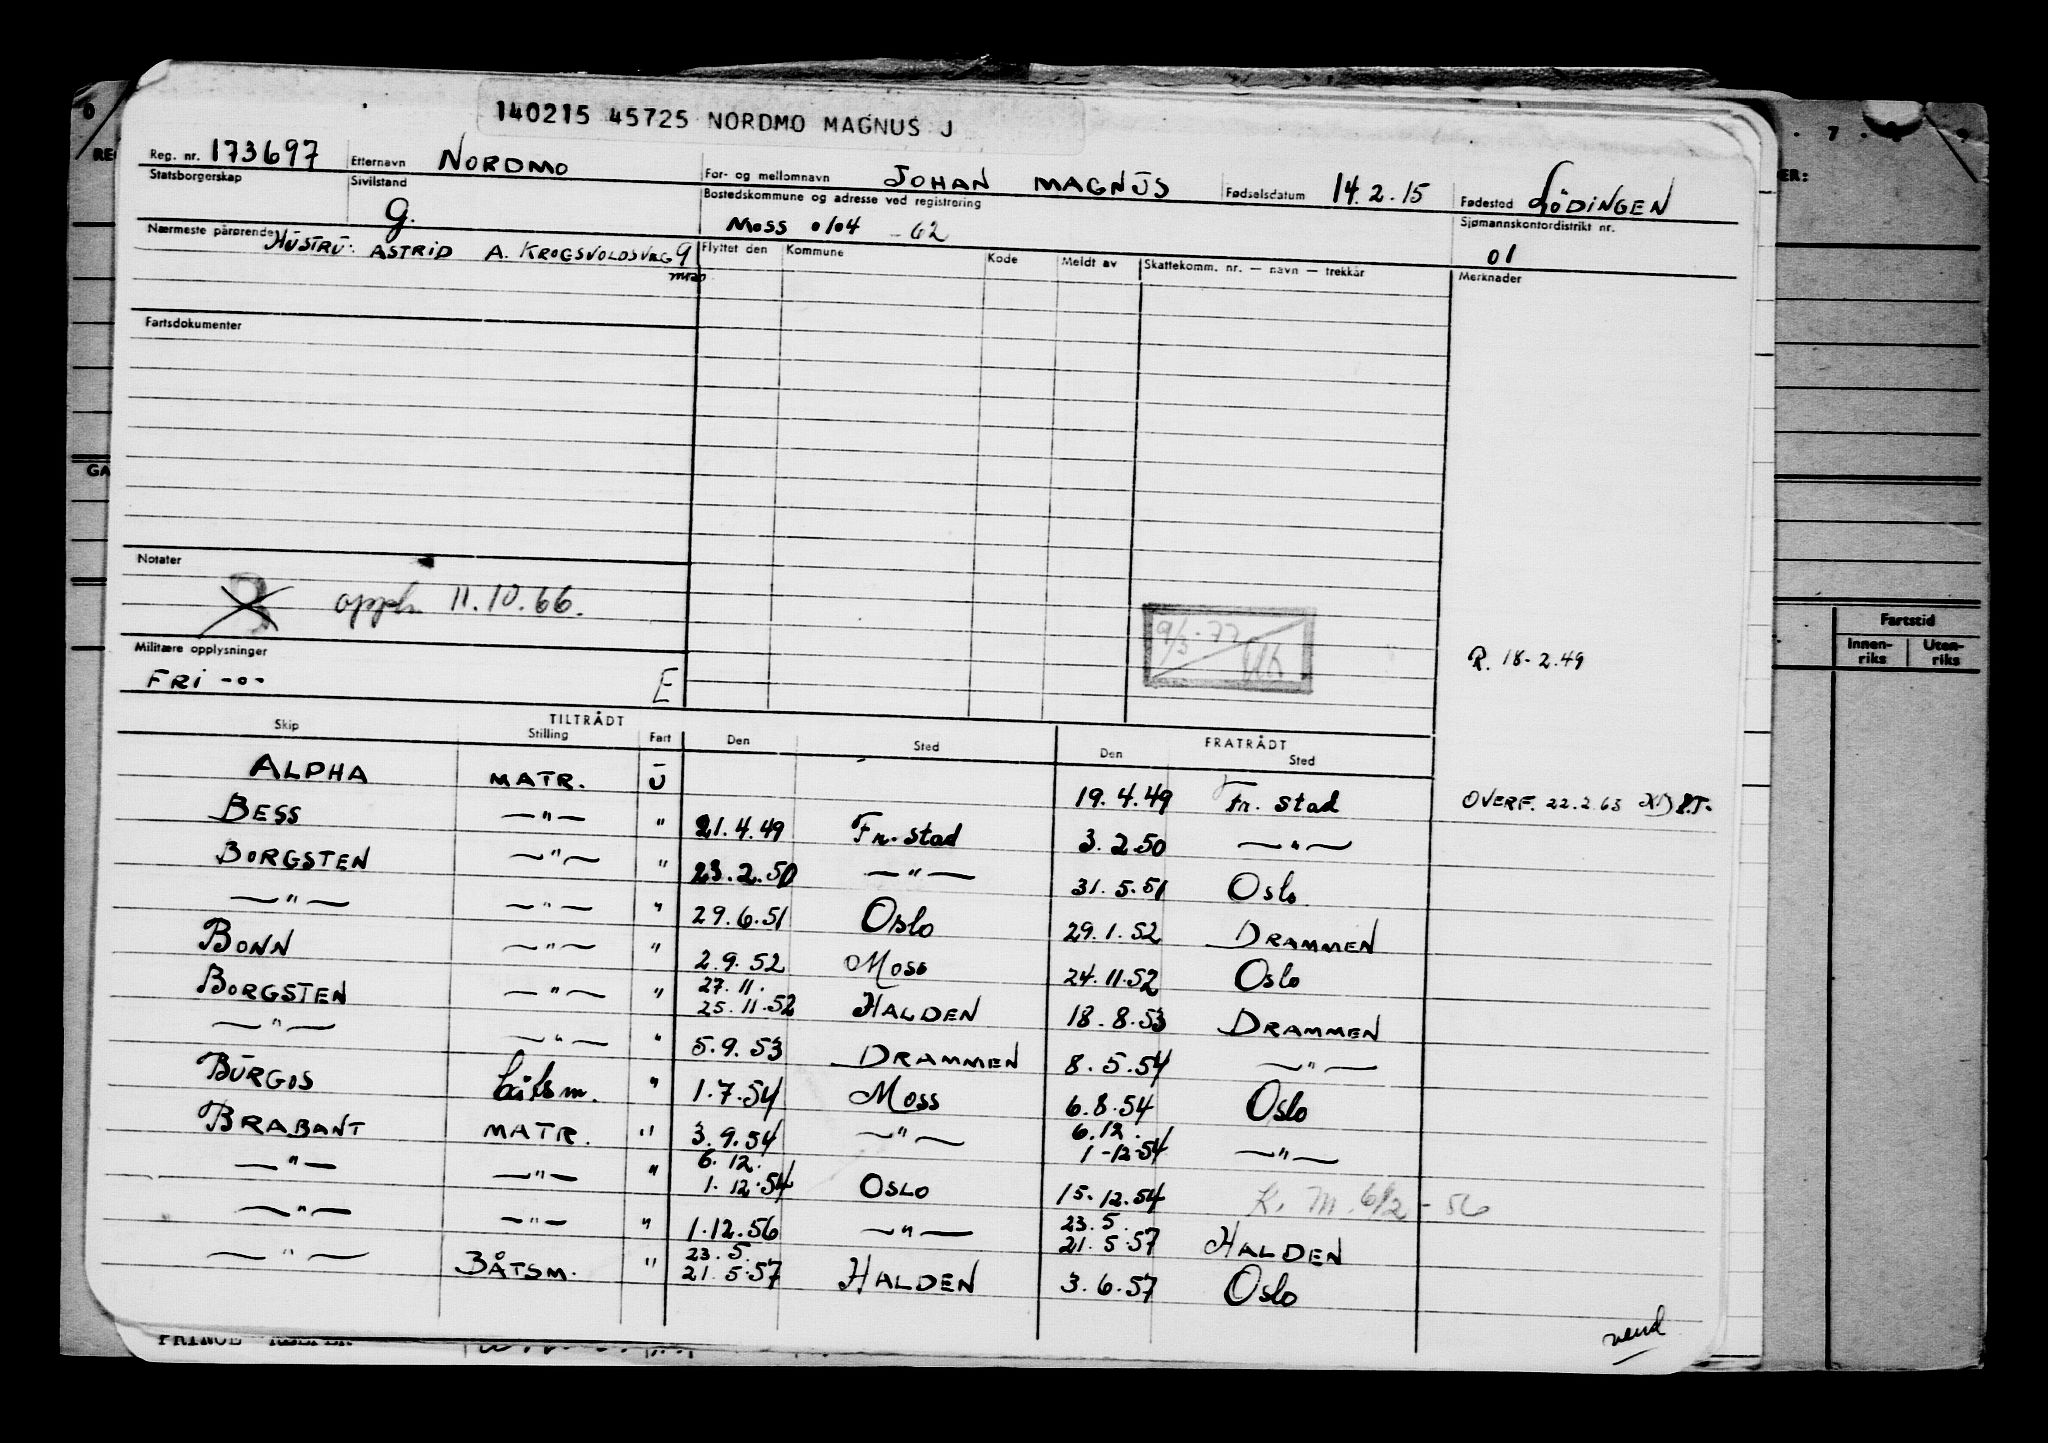 140215 45725 NORDMO MAGNUS J
Reg. nr. 173697 Etternavn NORDMO For- og mellomnavn JOHAN MAGNUS Fødselsdatum 14.2.15 Fødested LÖDINGEN
Statsborgerskap Sivilstand G. Bostedskommune og adresse ved registrering Moss 0104 - 62 Sjømannskontordistrikt nr. 01
Nærmeste pårørende HUSTRU: ASTRID A. KROGSVOLDSVEG 9
Moss
Flyttet den Kommune Kode Meldt av Skattekomm. nr. — navn — trekkår Merknader
Fartsdokumenter
Notater
11.10.66.
9/3-77
R. 18-2.49
Militære opplysninger
FRI -o- E
TILTRÅDT FRATRÅDT
Skip Stilling Fart Den Sted Den Sted
ALPHA MATR. U 19.4.49 Fr. stad OVERF. 22.2.63
BESS —"— " 21.4.49 Fr. stad 3.2.50 —"—
BORGSTEN —"— " 23.2.50 —"— 31.5.51 Oslo
—"— —"— " 29.6.51 Oslo 29.1.52 DRAMMEN
BONN —"— " 2.9.52 Moss 24.11.52 Oslo
27.11.
BORGSTEN —"— " 25.11.52 HALDEN 18.8.53 DRAMMEN
—"— —"— " 5.9.53 DRAMMEN 8.5.54 —"—
BURGOS båtsm. " 1.7.54 Moss 6.8.54 Oslo
6.12.
BRABANT MATR. " 3.9.54 —"— 1-12-54 —"—
6.12.
—"— —"— " 1.12.54 OSLO 15.12.54 K. M. 6/2-56
23.5.
—"— —"— " 1.12.56 —"— 21.5.57 HALDEN
23.5.
—"— BÅTSM. " 21.5.57 HALDEN 3.6.57 Oslo
vend
Fartstid
Innen-
riks
Uten-
riks